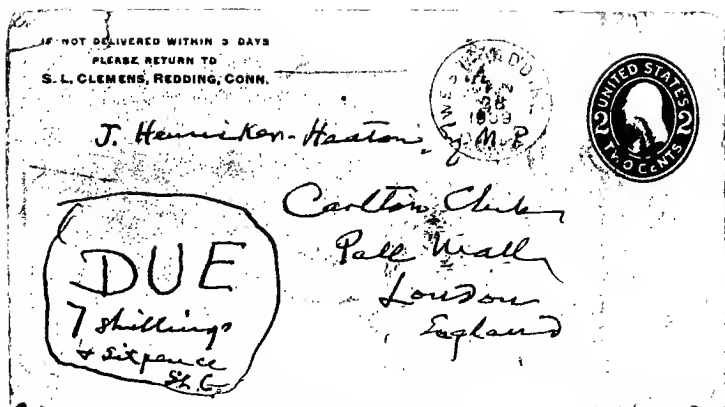 IF NOT DELIVERED WITHIN 3 DAYS
PLEASE RETURN TO
S. L. CLEMENS, REDDING, CONN.
1909
UNITED STATES
2 2
TWO CENTS
J. Henniker-Heaton, M.P.
Carlton Club
Pall Mall
London
England
DUE
7 shillings
& sixpence
SLC.